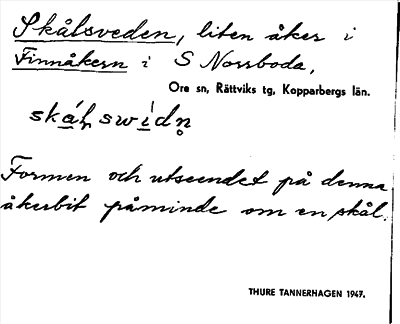 Skålsveden, liten åker i
Finnåkern i S Norrboda,
Ore sn, Rättviks tg, Kopparbergs län.
skáɫswìdn̥
Formen och utseendet på denna
åkerbit påminde om en skål.
THURE TANNERHAGEN 1947.